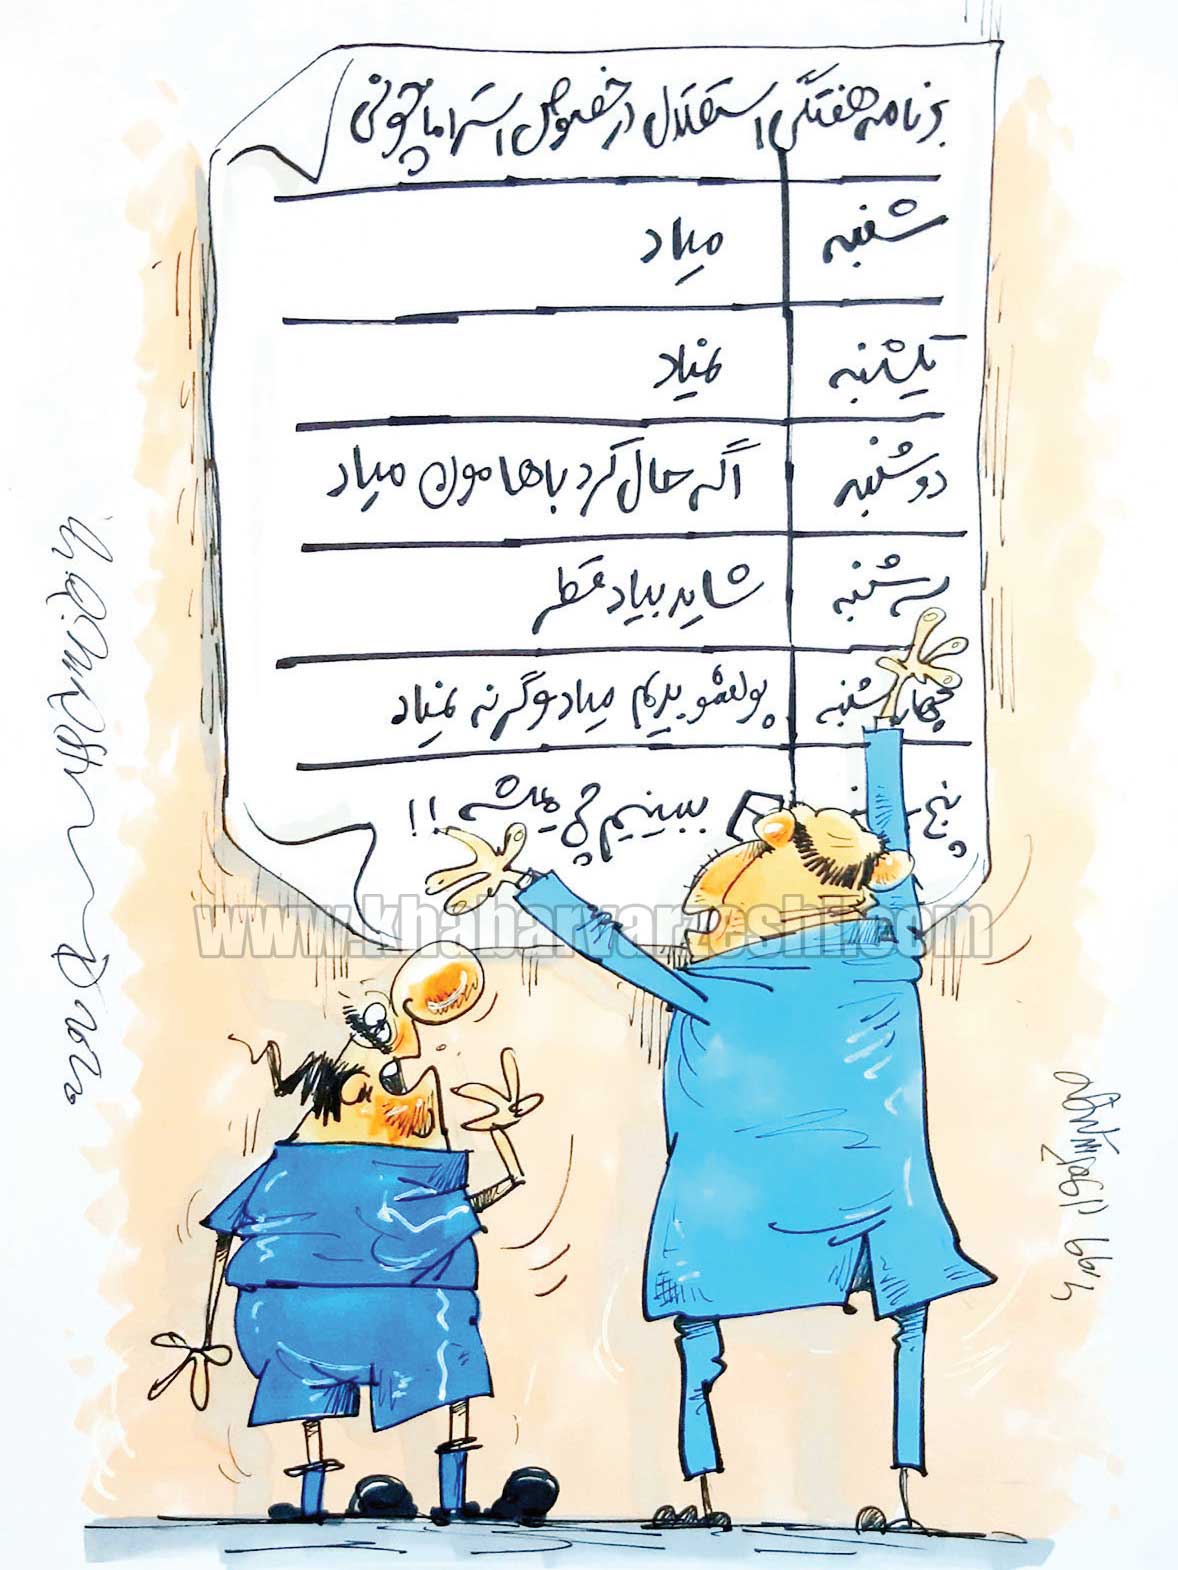 برنامه هفتگی استقلال در خصوص استراماچونی
شنبه میاد
یکشنبه نمیاد
دوشنبه اگه حال کرد باهامون میاد
سه شنبه شاید بیاد قطر
چهارشنبه پولشو بدیم میاد وگرنه نمیاد
پنج ببینیم چی میشه !!
www.khabarvarzeshi.com